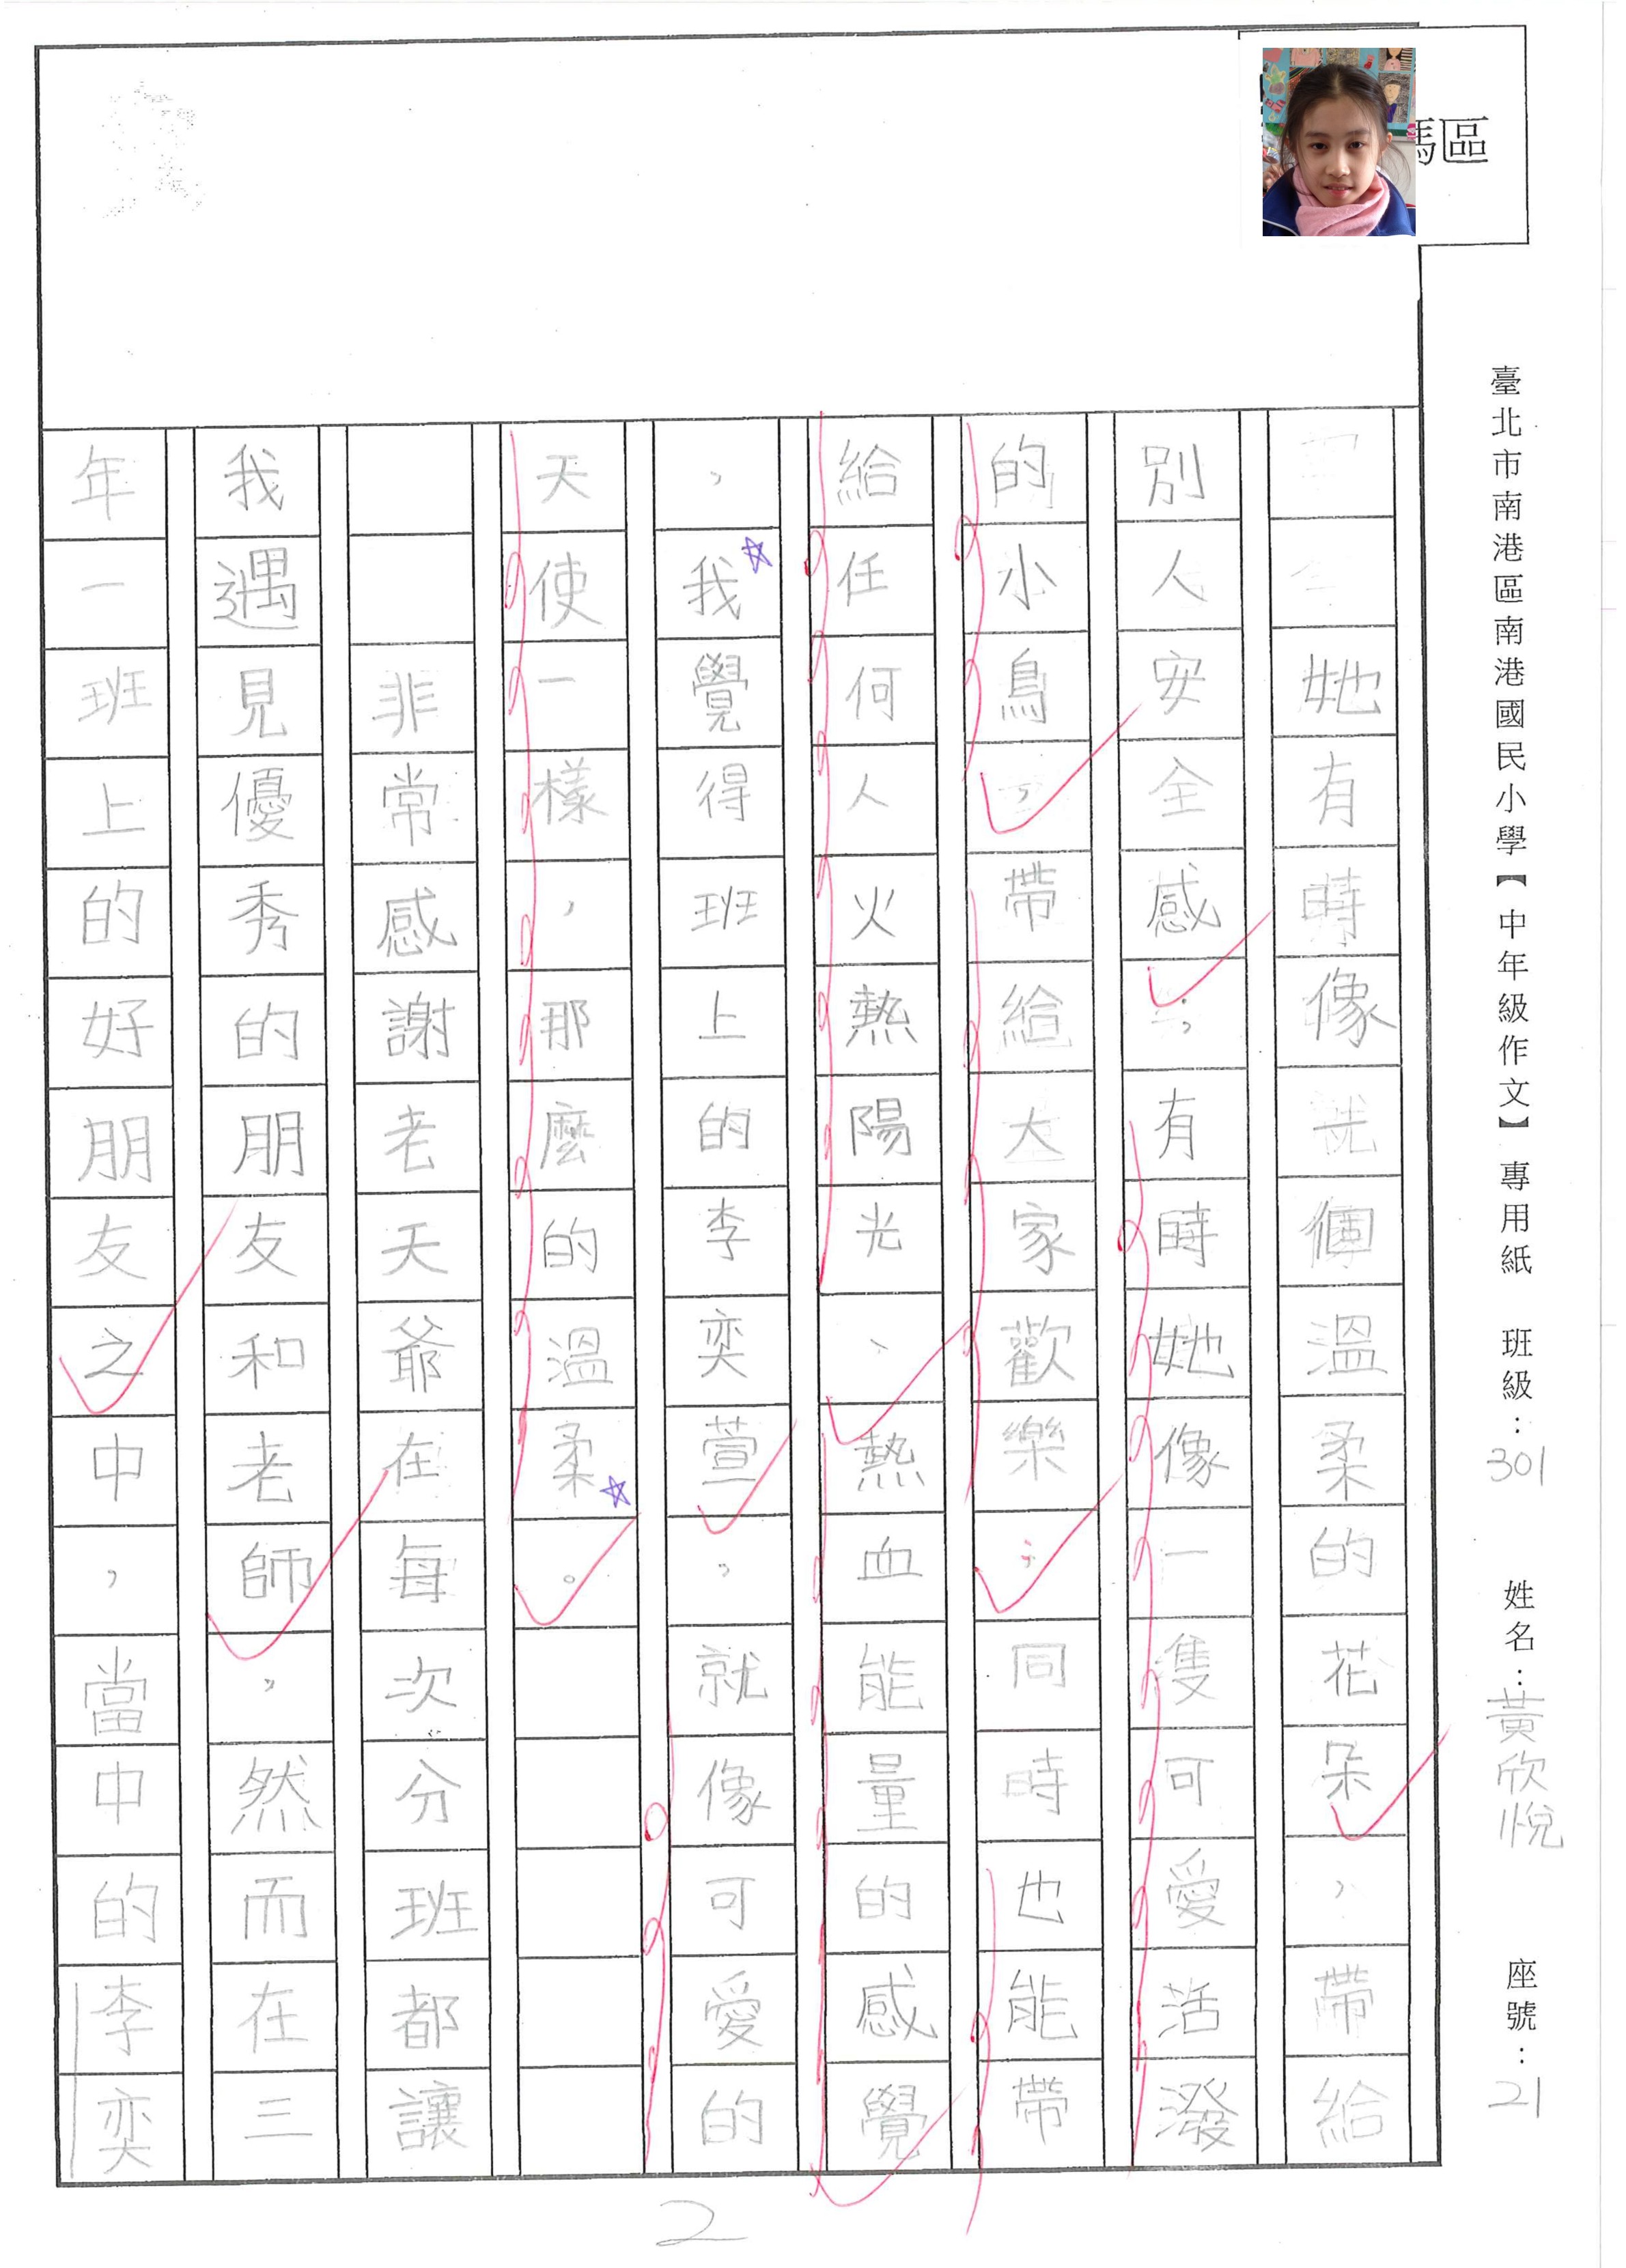 碼區
臺北市南港區南港國民小學【中年級作文】專用紙 班級：301 姓名：黃欣悅 座號：21
她有時像個溫柔的花朵，帶給
別人安全感；有時她像一隻可愛活潑
的小鳥，帶給大家歡樂；同時也能帶
給任何人火熱陽光、熱血能量的感覺
，我覺得班上的李奕萱，就像可愛的
天使一樣，那麼的溫柔。
非常感謝老天爺在每次分班都讓
我遇見優秀的朋友和老師，然而在三
年一班上的好朋友之中，當中的李奕
2